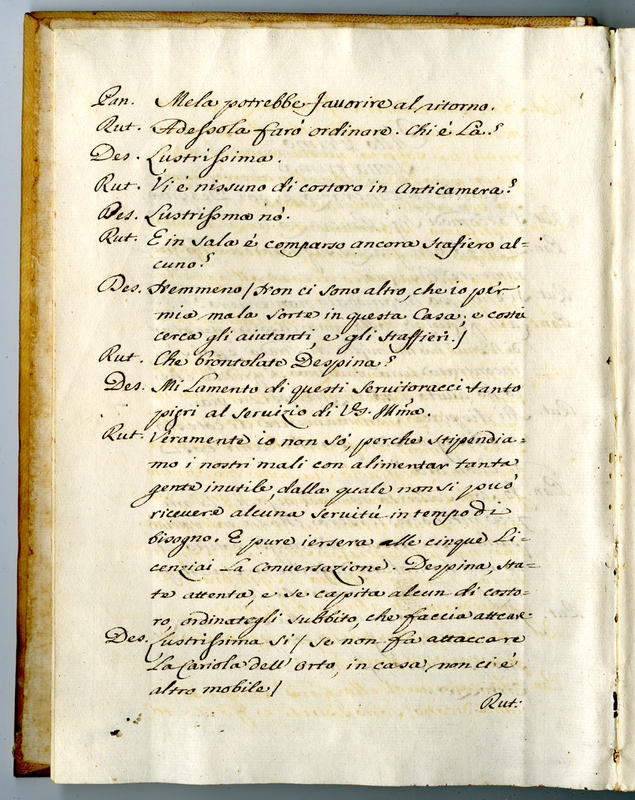 Pan. Mela potrebbe favorire al ritorno.
Rut. Adessola farò ordinare. Chi è Là?
Des. Lustrissima.
Rut. Vi è nissuno di costoro in Anticamera?
Des. Lustrissima nò.
Rut. E in sala è comparso ancora staffiero al=
cuno?
Des. Nemmeno / Non ci sono altro, che io per
mia mala sorte in questa Casa; e costei
cerca gli aiutanti, e gli staffieri. /
Rut. Che brontolate Despina?
Des. Mi Lamento di questi servitoracci tanto
pigri al servizio di VS. Illma.
Rut. Veramente io non sò, perche stipendia=
mo i nostri mali con alimentar tanta
gente inutile, dalla quale non si può
ricevere alcuna servitù in tempo di
bisogno. E pure iersera alle cinque Li=
cenziai La Conversazione. Despina, sta=
te attenta, e se capita alcun di costo=
ro, ordinategli subbito, che faccia attcare.
Des. Lustrissima si / se non fa attaccare
La Cariola dell' Orto, in casa non ci è
altro mobile /
Rut: